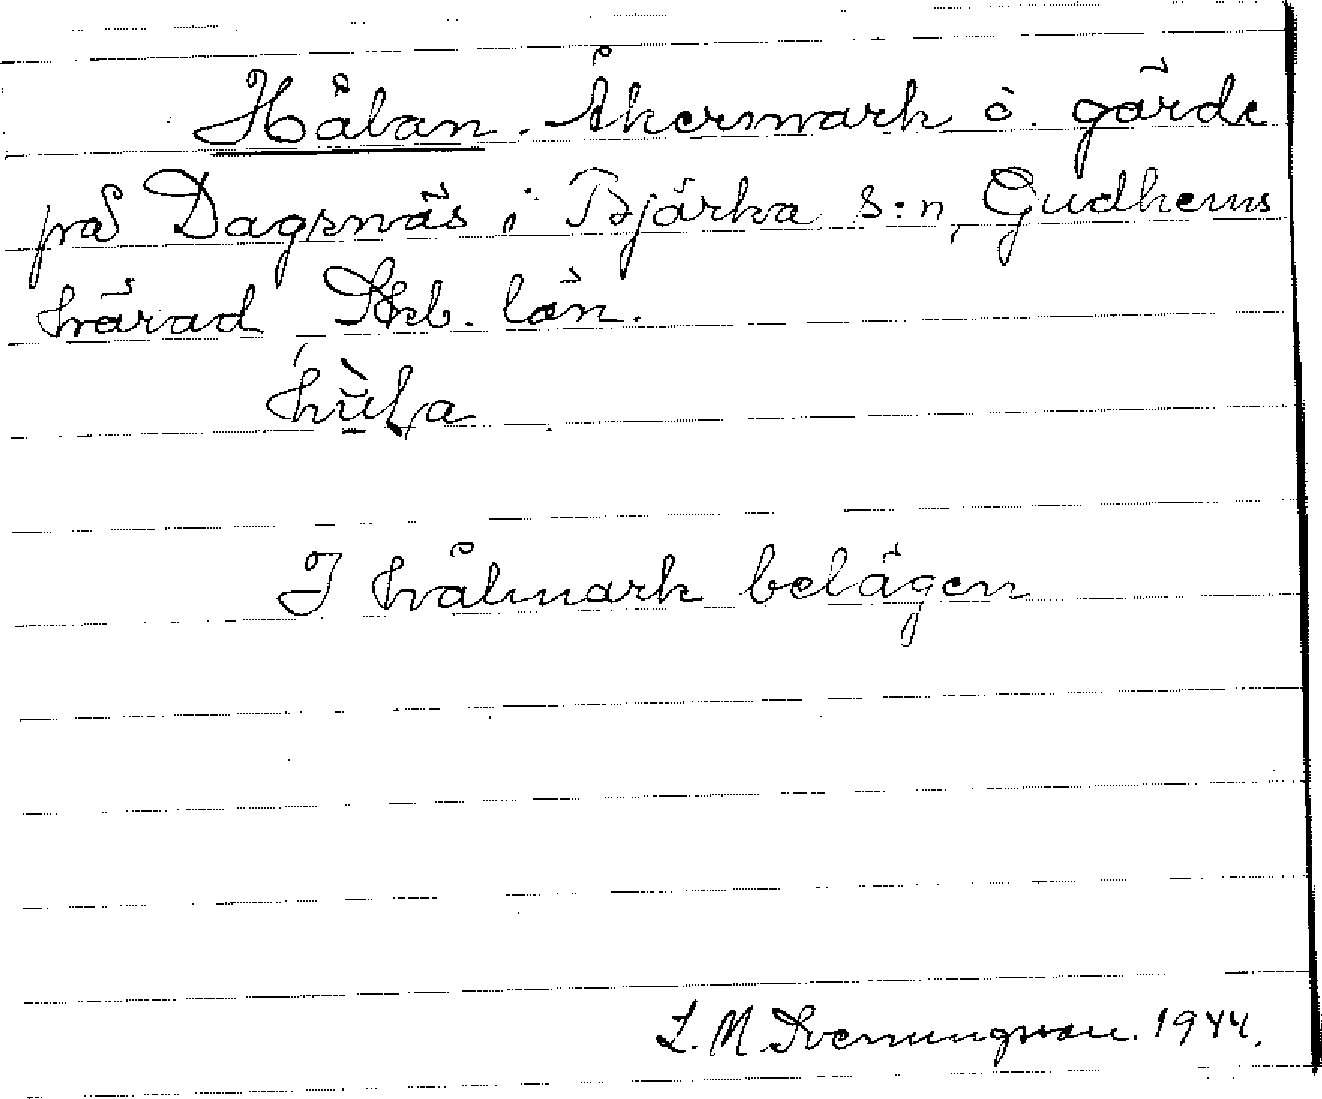 Hålan. Åkermark o. gärde
på Dagsnäs i Bjärka s:n, Gudhems
härad, Skb. län.
I hålmark belägen
L. M. Svenungsson. 1944.